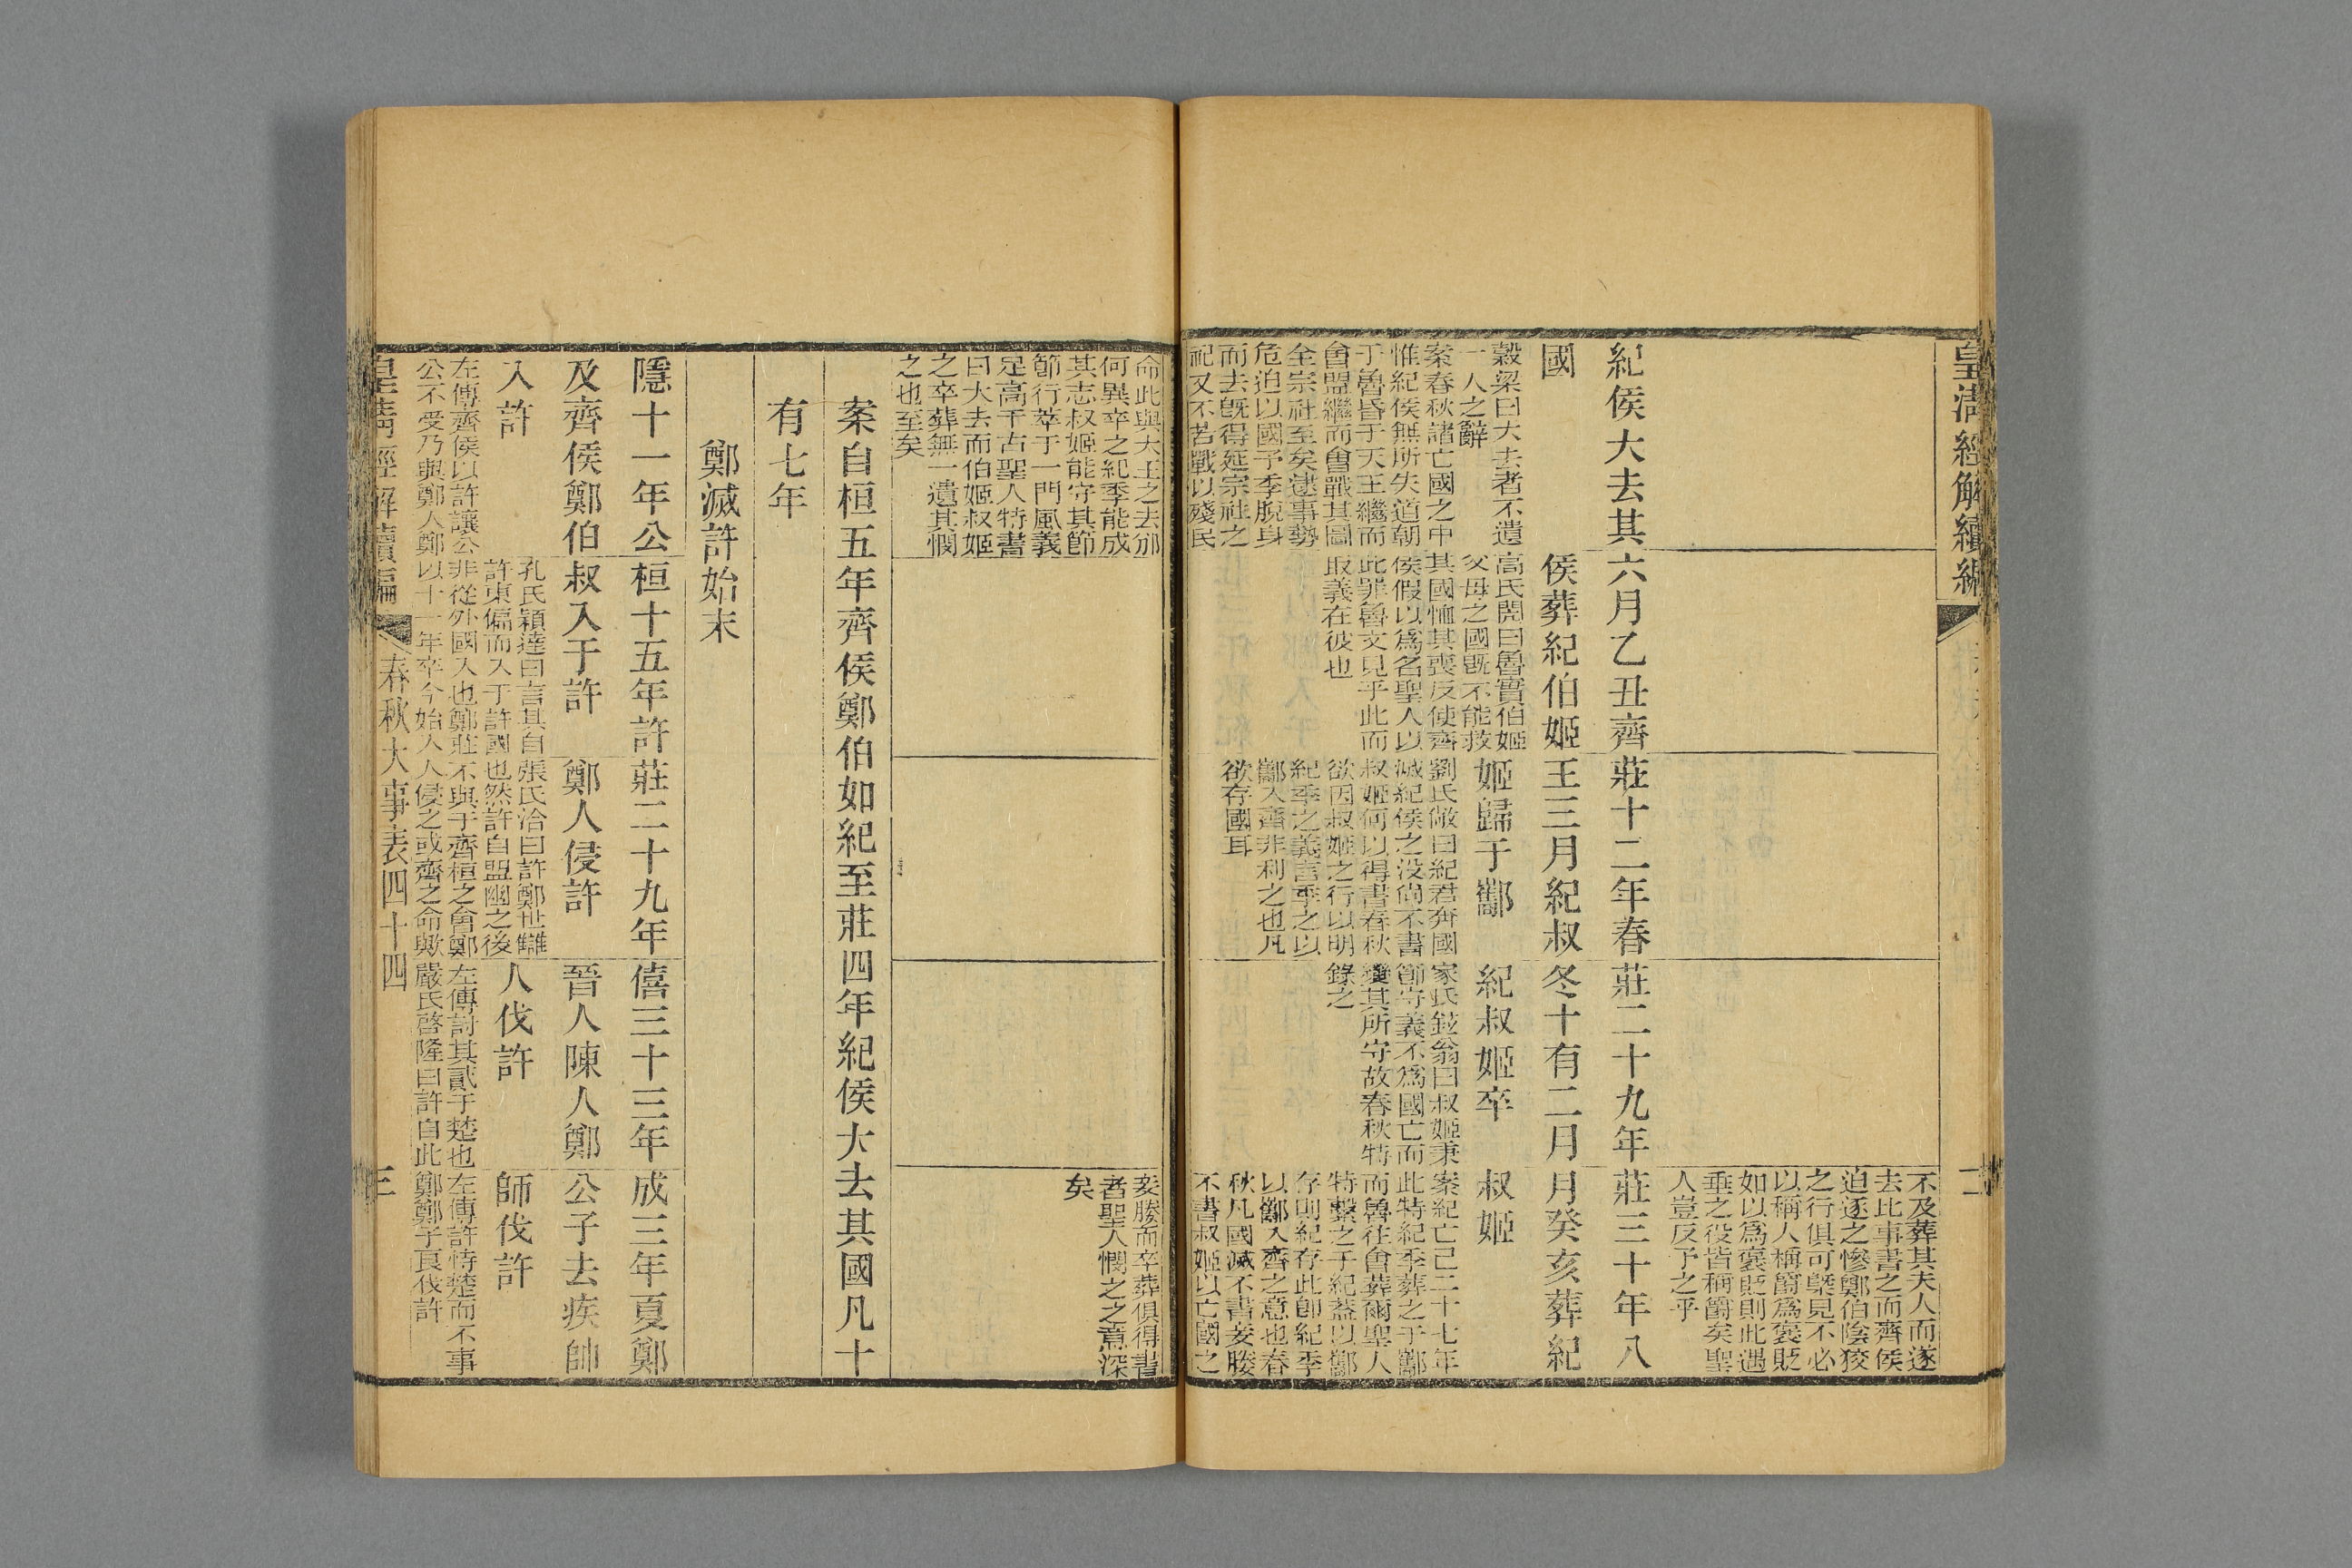 皇清經解續編
二
不及葬其夫人而遂
去此事書之而齊侯
迫逐之慘鄭伯陰狡
之行俱可槩見不必
以稱人稱爵爲褒貶
如以爲褒貶則此遇
垂之役皆稱爵矣聖
人豈反予之乎
紀侯大去其
國
穀梁曰大去者不遺
一人之辭
案春秋諸亡國之中
惟紀侯無所失道朝
于魯昏于天王繼而
會盟繼而會戰其圖
全宗社至矣逮事勢
危迫以國予季脫身
而去旣得延宗社之
祀又不苦戰以殘民
六月乙丑齊
侯葬紀伯姬
高氏閌曰魯實伯姬
父母之國旣不能救
其國恤其喪反使齊
侯假以爲名聖人以
此罪魯文見乎此而
取義在彼也
莊十二年春
王三月紀叔
姬歸于酅
劉氏敞曰紀君奔國
滅紀侯之没尙不書
叔姬何以得書春秋
欲因叔姬之行以明
紀季之義言季之以
酅入齊非利之也凡
欲存國耳
莊二十九年
冬十有二月
紀叔姬卒
家氏鉉翁曰叔姬秉
節守義不爲國亡而
變其所守故春秋特
錄之
莊三十年八
月癸亥葬紀
叔姬
案紀亡已二十七年
此特紀季葬之于酅
而魯往會葬爾聖人
特繫之于紀蓋以酅
存則紀存此卽紀季
以酅入齊之意也春
秋凡國滅不書妾媵
不書叔姬以亡國之
命此與大王之去邠
何異卒之紀季能成
其志叔姬能守其節
節行萃于一門風義
足高千古聖人特書
曰大去而伯姬叔姬
之卒葬無一遺其憫
之也至矣
妾媵而卒葬俱得書
者聖人憫之之意深
矣
案自桓五年齊侯鄭伯如紀至莊四年紀侯大去其國凡十
有七年
鄭滅許始末
隱十一年公
及齊侯鄭伯
入許
左傳齊侯以許讓公
公不受乃與鄭人
桓十五年許
叔入于許
孔氏穎達曰言其自
許東偏而入于許國
非從外國入也鄭莊
鄭以十一年卒今始入
莊二十九年
鄭人侵許
張氏洽曰許鄭世讎
也然許自盟幽之後
不與于齊桓之會鄭
人侵之或齊之命歟
僖三十三年
晉人陳人鄭
人伐許
左傳討其貳于楚也
嚴氏啓隆曰許自此
成三年夏鄭
公子去疾帥
師伐許
左傳許恃楚而不事
鄭鄭子良伐許
皇清經解續編
春秋大事表四十四
三